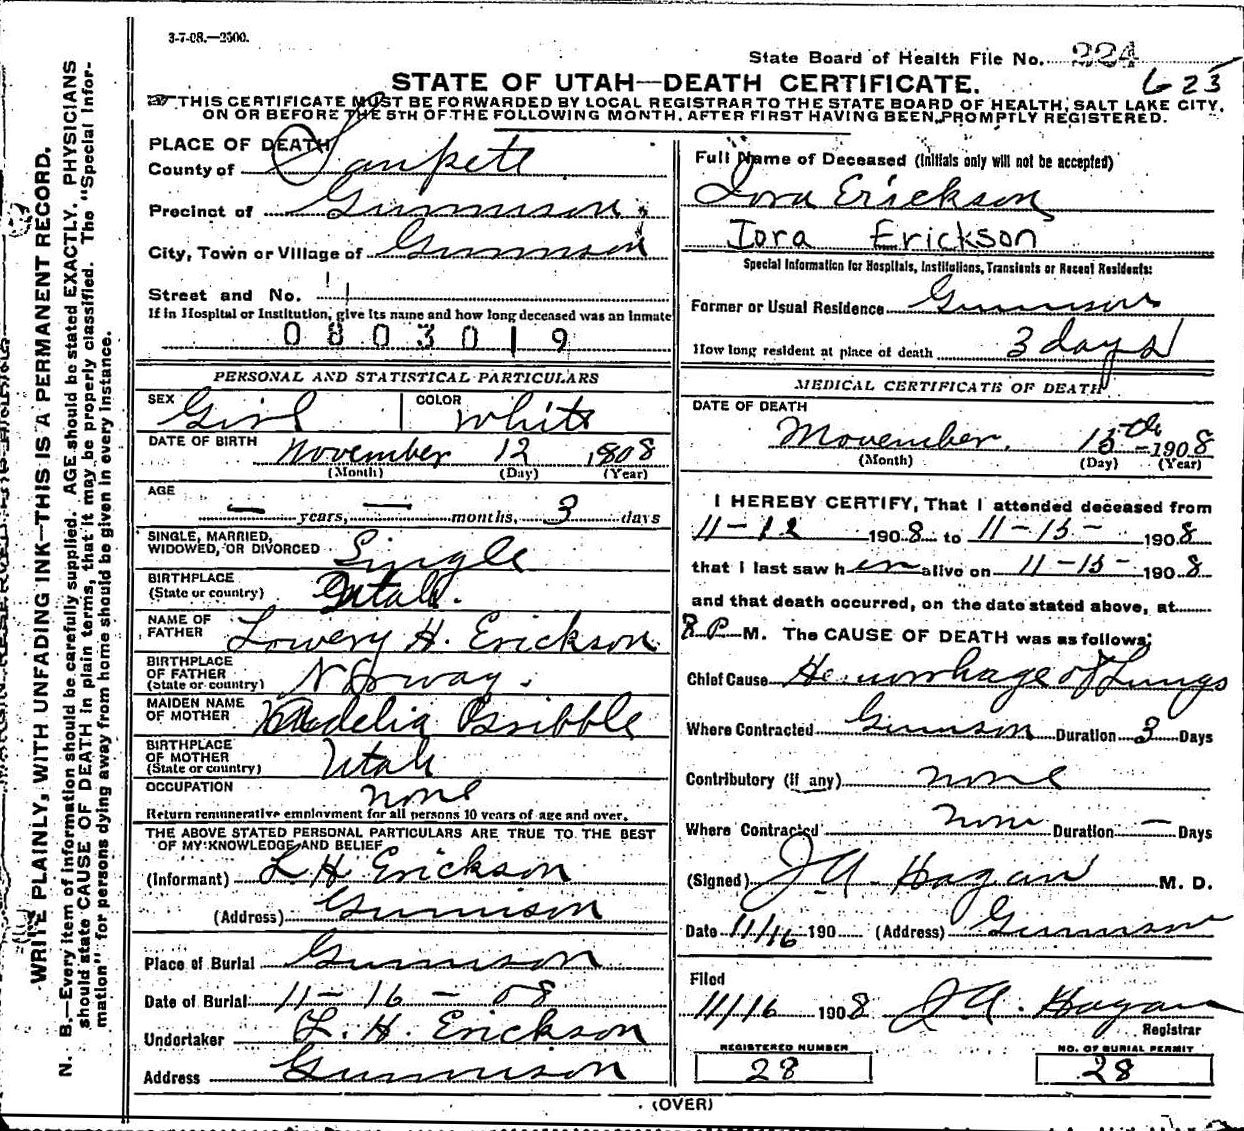 3-7-08.—2500.
State Board of Health File No. 224
STATE OF UTAH—DEATH CERTIFICATE. 625
THIS CERTIFICATE MUST BE FORWARDED BY LOCAL REGISTRAR TO THE STATE BOARD OF HEALTH, SALT LAKE CITY,
ON OR BEFORE THE 5TH OF THE FOLLOWING MONTH, AFTER FIRST HAVING BEEN PROMPTLY REGISTERED.
WRITE PLAINLY, WITH UNFADING INK—THIS IS A PERMANENT RECORD.
N. B.—Every item of information should be carefully supplied. AGE should be stated EXACTLY. PHYSICIANS
should state CAUSE OF DEATH in plain terms, that it may be properly classified. The "Special Infor-
mation" for persons dying away from home should be given in every instance.
PLACE OF DEATH
County of Sanpete
Precinct of Gunnison
City, Town or Village of Gunnison
Street and No.
If in Hospital or Institution, give its name and how long deceased was an inmate
0803019
PERSONAL AND STATISTICAL PARTICULARS
SEX Girl COLOR White
DATE OF BIRTH November 12 1908
(Month) (Day) (Year)
AGE
— years, — months, 3 days
SINGLE, MARRIED,
WIDOWED, OR DIVORCED Single
BIRTHPLACE
(State or country) Utah.
NAME OF
FATHER Lowery H. Erickson
BIRTHPLACE
OF FATHER
(State or country) Norway.
MAIDEN NAME
OF MOTHER Ardelia Bribble
BIRTHPLACE
OF MOTHER
(State or country) Utah
OCCUPATION none
Return remunerative employment for all persons 10 years of age and over.
THE ABOVE STATED PERSONAL PARTICULARS ARE TRUE TO THE BEST
OF MY KNOWLEDGE AND BELIEF
(Informant) L H Erickson
(Address) Gunnison
Place of Burial Gunnison
Date of Burial 11-16-08
Undertaker L. H. Erickson
Address Gunnison
Full Name of Deceased (Initials only will not be accepted)
Iora Erickson
Iora Erickson
Special Information for Hospitals, Institutions, Transients or Recent Residents:
Former or Usual Residence Gunnison
How long resident at place of death 3 days
MEDICAL CERTIFICATE OF DEATH
DATE OF DEATH
November 15th 1908
(Month) (Day) (Year)
I HEREBY CERTIFY, That I attended deceased from
11-12 1908 to 11-15- 1908
that I last saw her alive on 11-15- 1908
and that death occurred, on the date stated above, at
8 P M. The CAUSE OF DEATH was as follows:
Chief Cause Hemorrhage of Lungs
Where Contracted Gunnison Duration 3 Days
Contributory (if any) none
Where Contracted none Duration — Days
(Signed) J A. Hagan M. D.
Date 11/16 190 (Address) Gunnison
Filed
11/16 1908 J A. Hagan
Registrar
REGISTERED NUMBER NO. OF BURIAL PERMIT
28 28
(OVER)